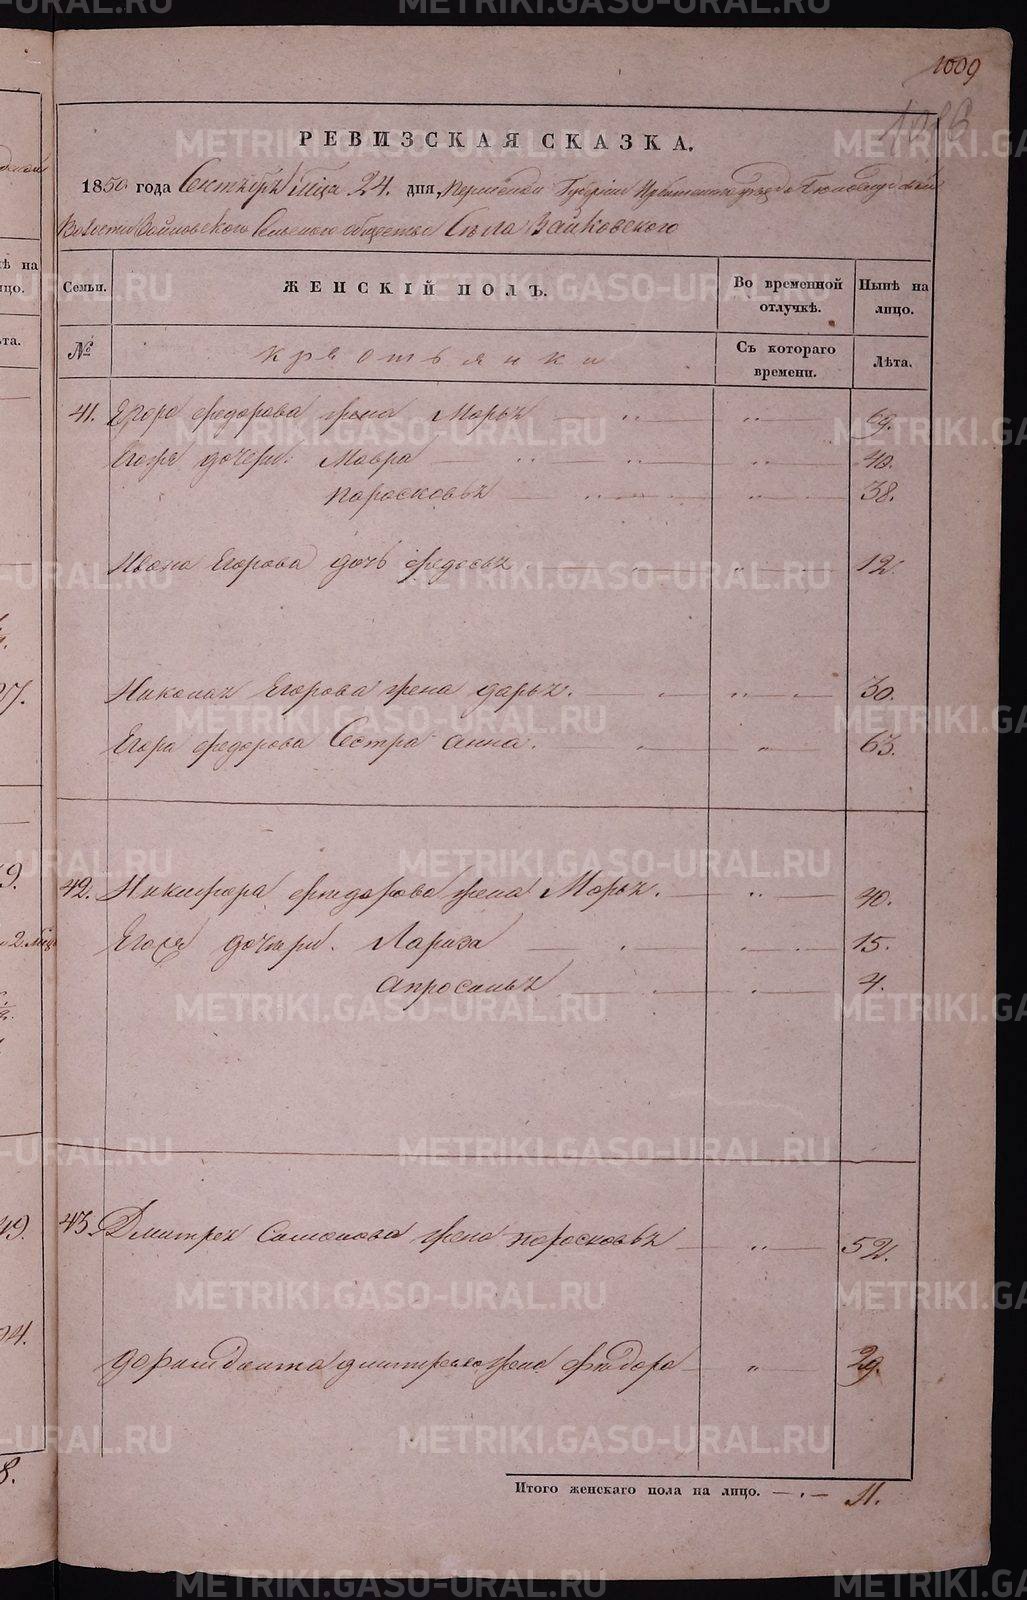 1009
РЕВИЗСКАЯ СКАЗКА.
1850 года Сентября м҃ца 24. дня, Пермской Губернiи Ирбитскаго уезда
Волости Сельскаго общества Села
Семьи. ЖЕНСКIЙ ПОЛЪ. Во временной отлучкѣ. Нынѣ на лицо.
№ крестьянки Съ котораго времени. Лѣта.
41. Егора Федорова жена Марья 69.
Егоже дочери: Мавра 40.
Парасковья 38.
Ивана Егорова дочь Федосья 12.
Николая Егорова жена Дарья. 30.
Егора Федорова Сестра Анна. 63.
42. Никифора Федорова жена Марья. 40.
Егоже дочери. Лариса 15.
Апросинья 4.
43. Дмитрея Самсонова жена Парасковья 52.
жена Федора 29.
Итого женскаго пола на лицо. 11.
METRIKI.GASO-URAL.RU